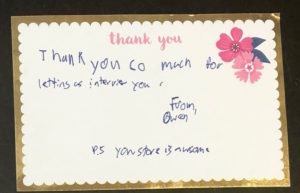 thank you
Thank you so much for
letting us interview you.
From,
Owen
P.S your store is awesome